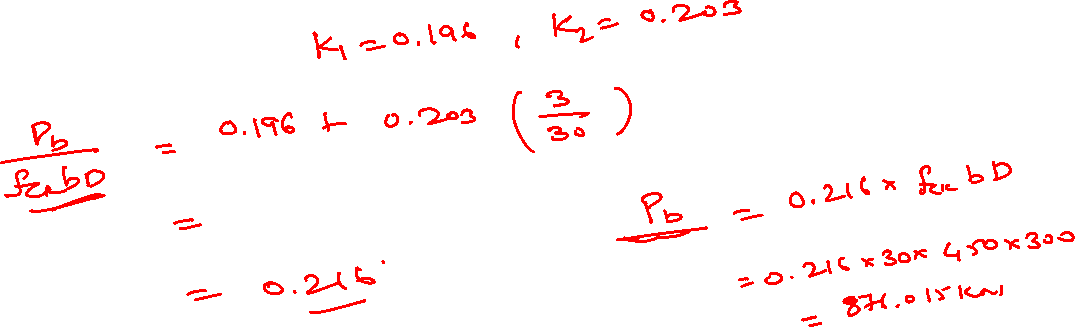 K₁ = 0.196 , K₂ = 0.203
P_b / f_ck bD = 0.196 + 0.203 ( 3 / 30 )
=
= 0.216
P_b = 0.216 × f_ck bD
= 0.216 × 30 × 450 × 300
= 876.015 KN